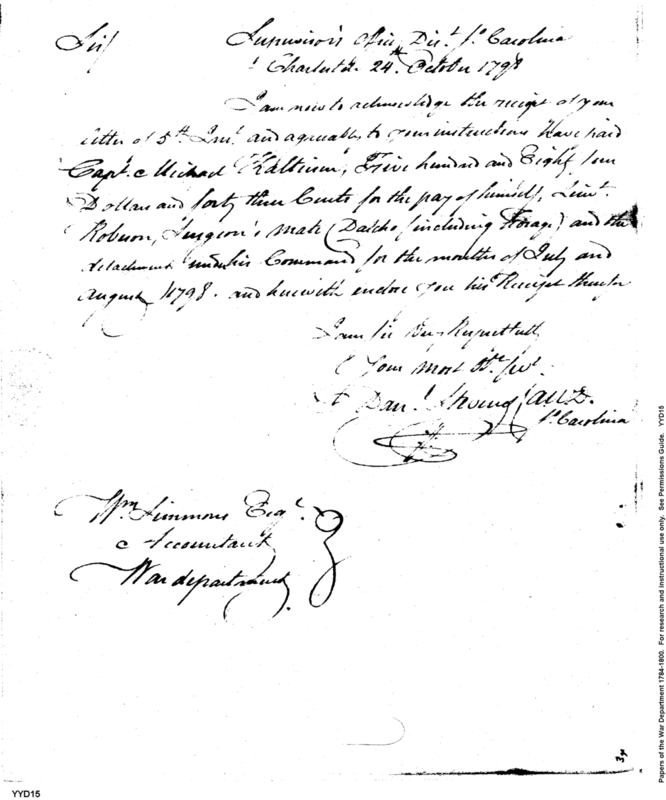 Sir/
Supervisor's Office Dist. So. Carolina
Charleston 24th October 1798
I am now to acknowledge the receipt of your
letter of 5th Inst. and agreeably to your instructions have paid
Capt. Michael Kalteisen, Five hundred and Eighty four
Dollars and forty three Cents for the pay of himself, Lieut.
Robeson, Surgeon's Mate Dalcho (including Forage) and the
detachment under his Command for the months of July and
August 1798. and herewith enclose you his Receipt therefor
I am Sir Very Respectfully
Your most Obt. Servt.
Danl. Stevens
So. Carolina
Wm Simmons Esqr.
Accountant
War department
YYD15
Papers of the War Department 1784-1800. For research and instructional use only. See Permissions Guide. YYD15